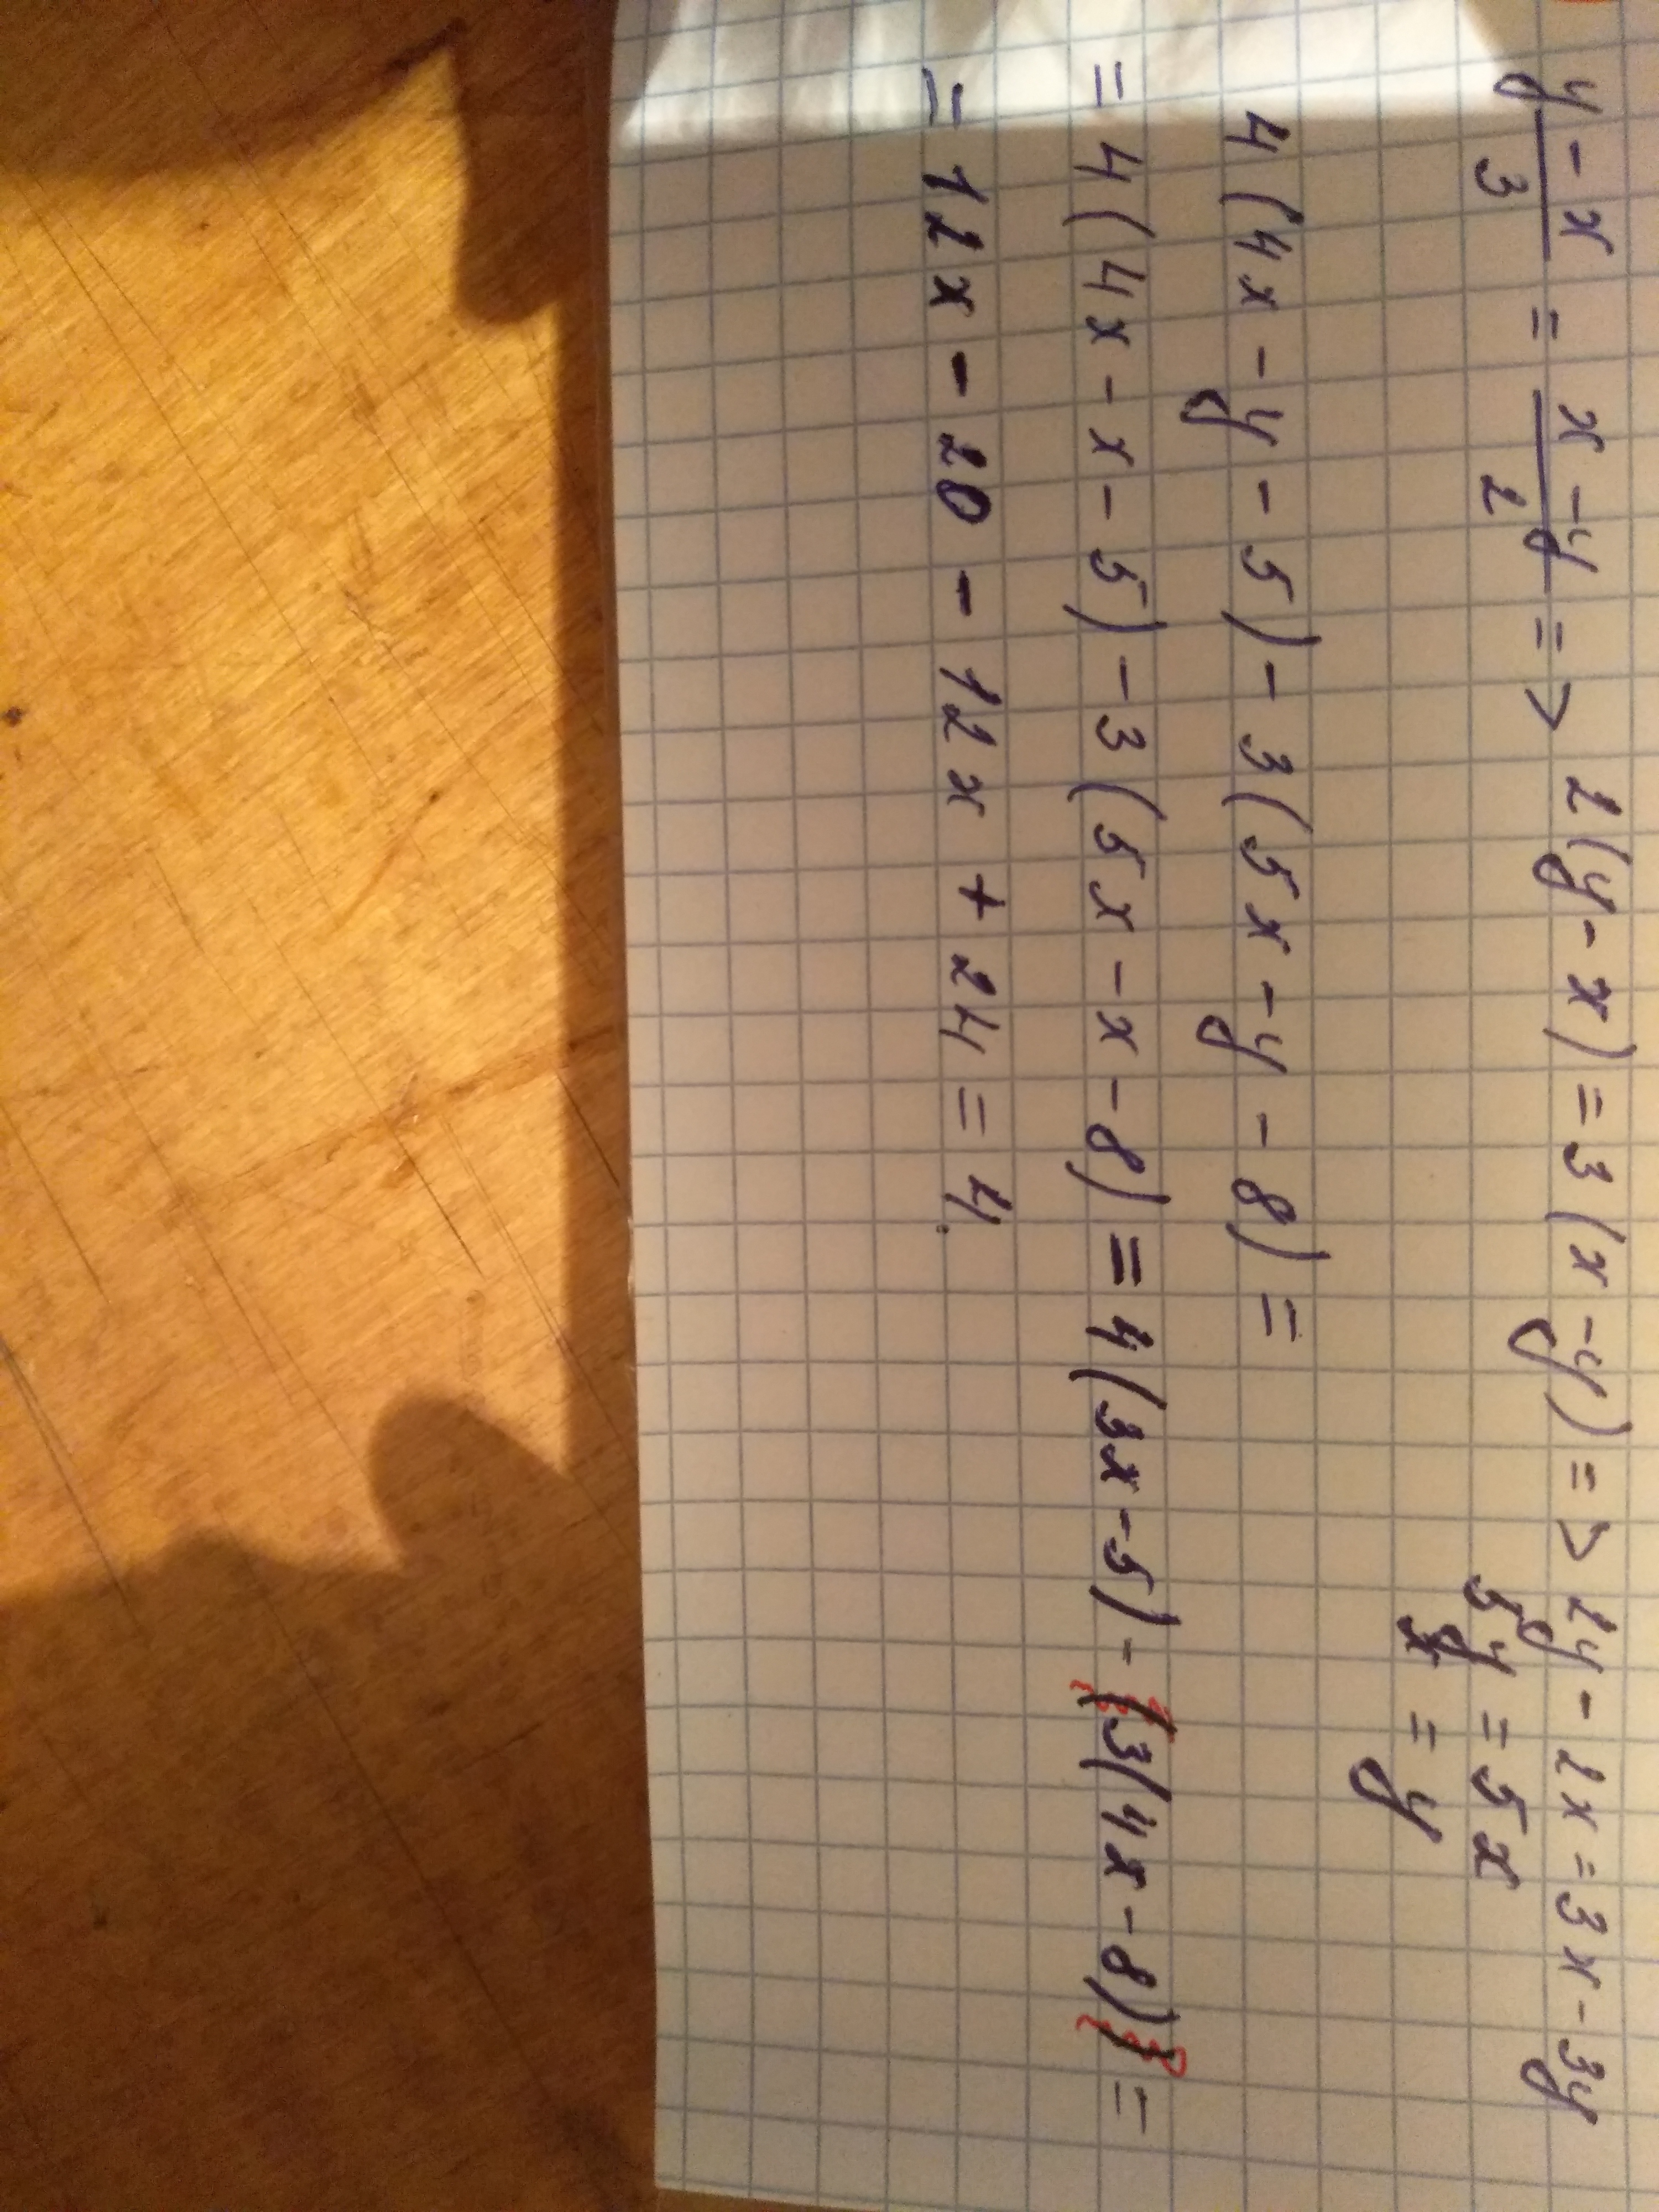 y-x/3 = x-y/2 => 2(y-x)=3(x-y) => 2y-2x=3x-3y
5y=5x
x=y
4(4x-y-5)-3(5x-y-8)=
=4(4x-x-5)-3(5x-x-8)=4(3x-5)-(3(4x-8))=
=12x-20-12x+24=4.